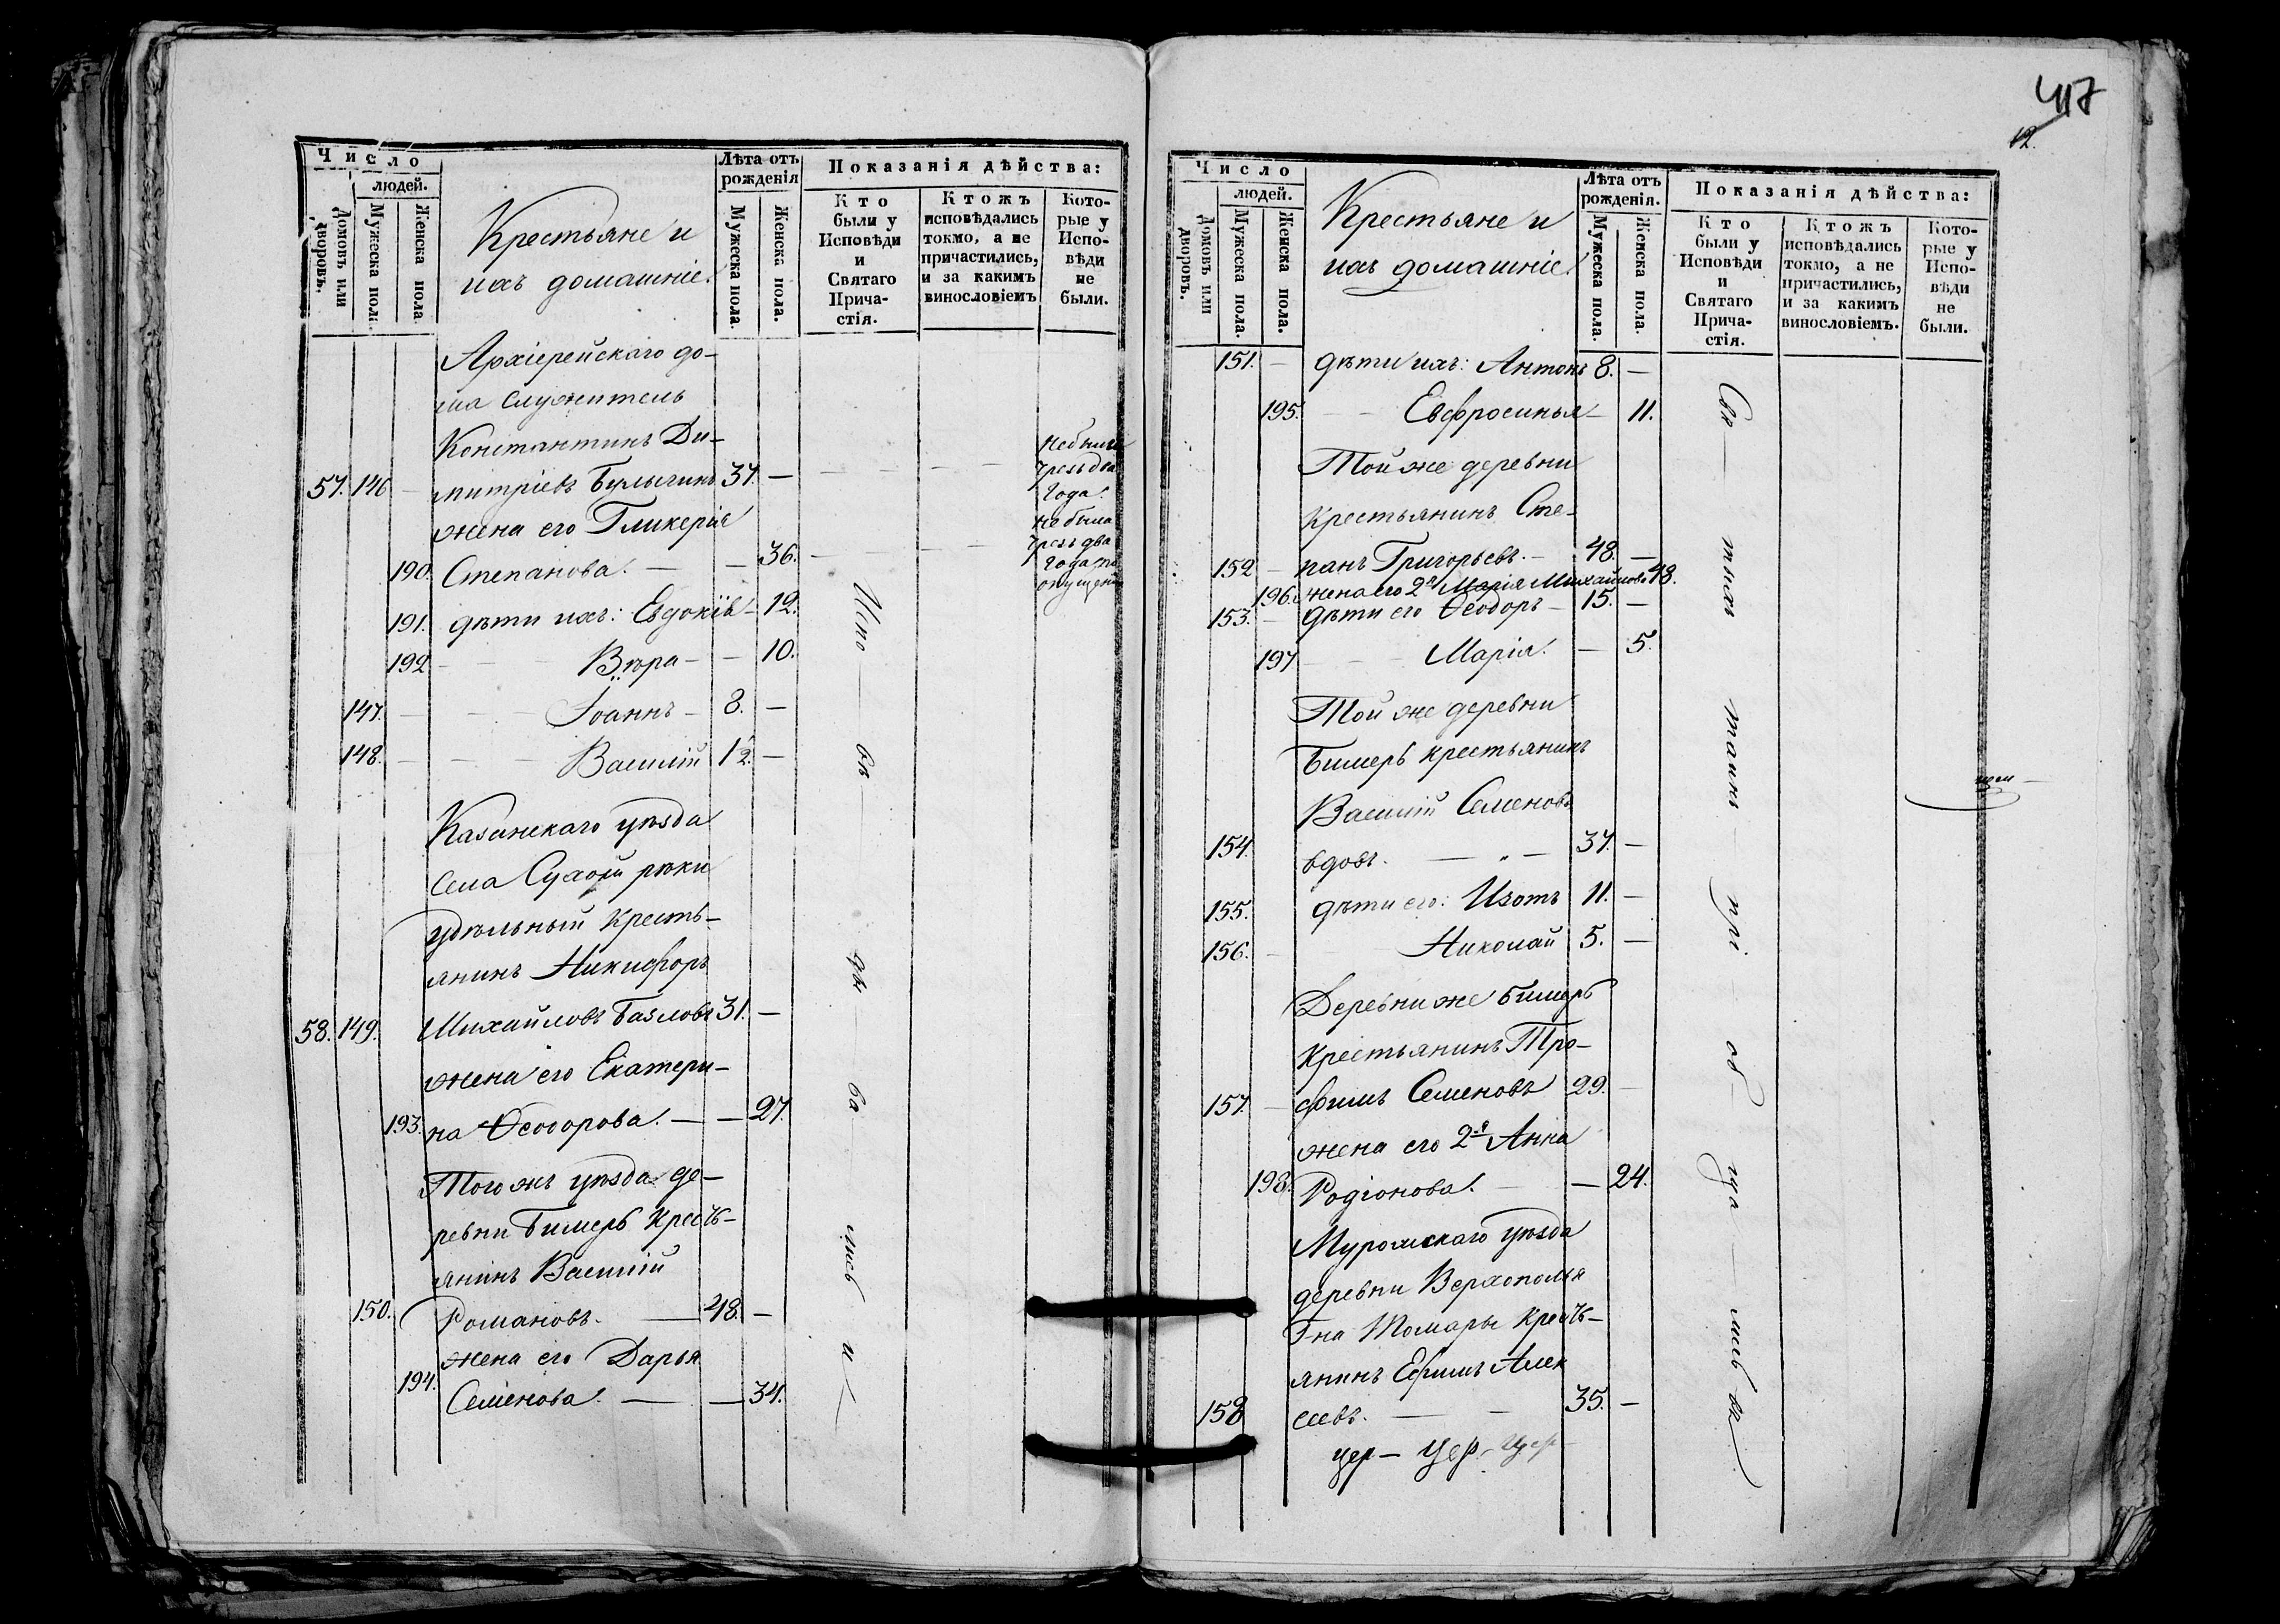 417
12.
Число
людей.
Домовъ или дворовъ.
Мужеска пола.
Женска пола.
Крестьяне и
ихъ домашніе.
Лѣта отъ
рожденія
Мужеска пола.
Женска пола.
Показанія дѣйства:
Кто
были у
Исповѣди
и
Святаго
Прича-
стія.
Ктожъ
исповѣдались
токмо, а не
причастились,
и за какимъ
винословіемъ
Кото-
рые у
Испо-
вѣди
не
были.
Архіерейскаго до-
ма служитель
Константинъ Ди-
57. 146 – митріевъ Булыгинъ 37. –
жена его Гликерія
190. Степанова. – – 36.
не былъ
чрезъ два
года.
не была
чрезъ два
года по
опущенію
191. дѣти ихъ: Евдокія – 12.
192 – – Вѣра – – 10.
147. – – – Іоаннъ – 8. –
148. – – – Василій 1/2. –
Казанскаго уѣзда
села Сухой рѣки
удѣльный кресть-
янинъ Никифоръ
58. 149. Михайловъ Базловъ 31. –
жена его Екатери-
193. на Ѳеодорова. – – 27.
Того жъ уѣзда де-
ревни Бимерь кресть-
янинъ Василій
150. Романовъ. – 48. –
жена его Дарья
194. Семенова. – – 34.
Испо – вѣ – ды – ва – лись и
Число
людей.
Домовъ или дворовъ.
Мужеска пола.
Женска пола.
Крестьяне и
ихъ домашніе.
Лѣта отъ
рожденія.
Мужеска пола.
Женска пола.
Показанія дѣйства:
Кто
были у
Исповѣди
и
Святаго
Прича-
стія.
Ктожъ
исповѣдались
токмо, а не
причастились,
и за какимъ
винословіемъ.
Кото-
рые у
Испо-
вѣди
не
были.
151. – дѣти ихъ: Антонъ 8. –
195. – – Евфросинья – 11.
Той же деревни
крестьянинъ Сте-
152 – панъ Григорьевъ. – 48. –
196. жена его 2я Марія Михайлова 48.
153. – дѣти его Ѳеодоръ – 15. –
197 – – Марія. – 5.
Той же деревни
Бимерь крестьянинъ
Василій Семеновъ
154. вдовъ. – „ – 37. –
155. дѣти его: Изотъ 11. –
156. – Николай 5. –
Деревни же Бимерь
крестьянинъ Тро-
157. – фимъ Семеновъ 29. –
жена его 2я Анна
198. Родіонова. – – 24.
Муромскаго уѣзда
деревни Верхополья
Г-на Томары кресть-
янинъ Ефимъ Алек
158 сѣевъ. – – 35. –
Свя – тыхъ таинъ – прі – об – ща – лись
цер – цер – цер